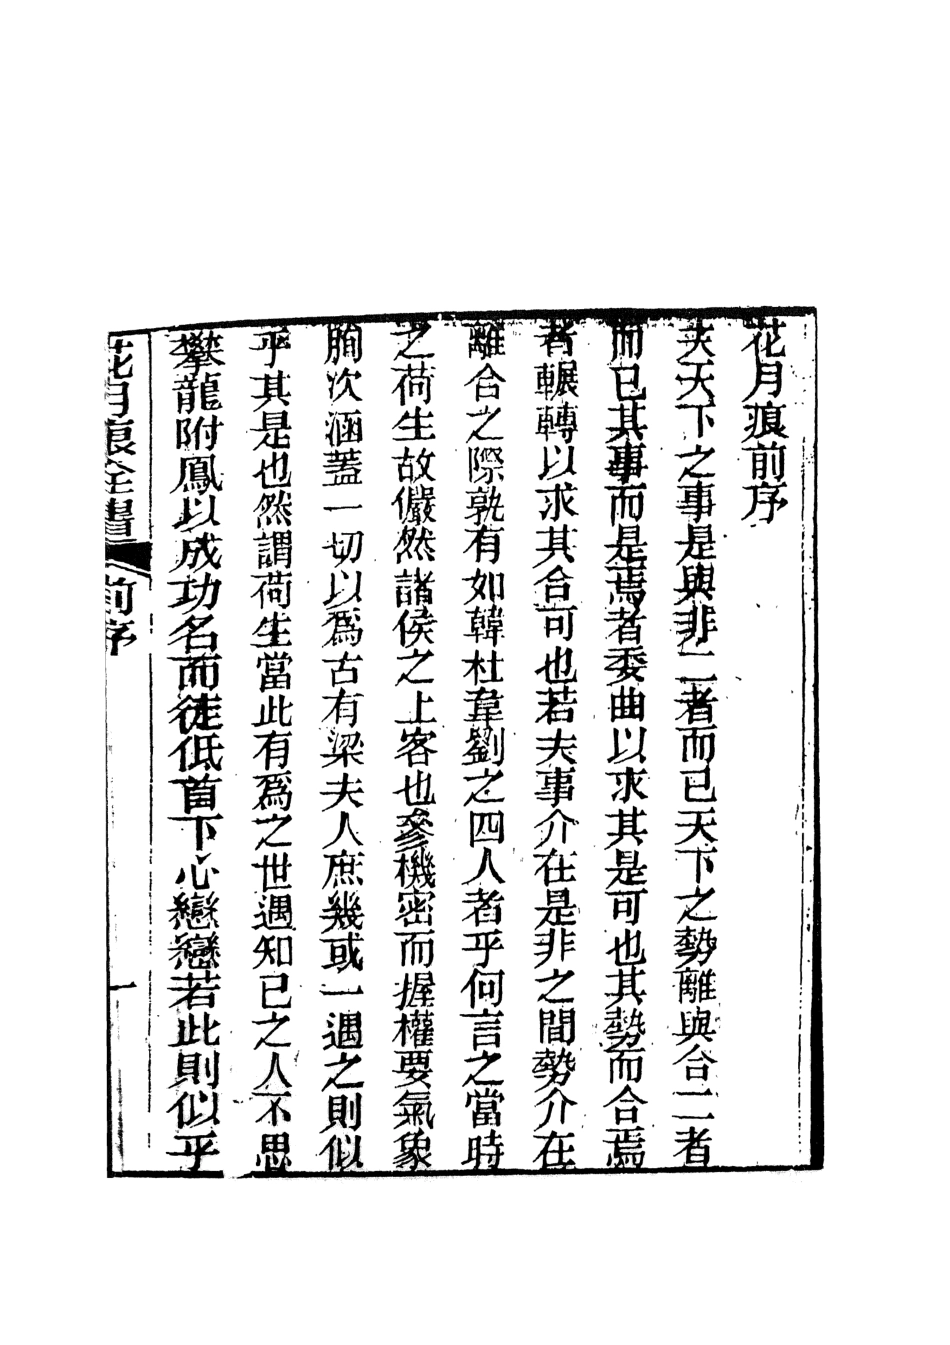 花月痕前序
夫天下之事是與非二者而已天下之勢離與合二者
而已其事而是焉者委曲以求其是可也其勢而合焉
者輾轉以求其合可也若夫事介在是非之間勢介在
離合之際孰有如韓杜韋劉之四人者乎何言之當時
之荷生故儼然諸侯之上客也參機密而握權要氣象
胸次涵蓋一切以爲古有梁夫人庶幾或一遇之則似
乎其是也然謂荷生當此有爲之世遇知已之人不思
攀龍附鳳以成功名而徒低首下心戀戀若此則似乎
花月痕全書 前序 一